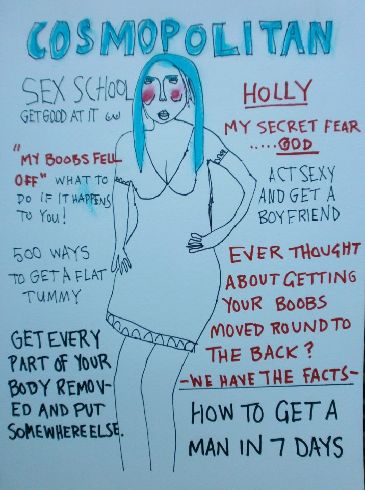 COSMOPOLITAN
SEX SCHOOL
GET GOOD AT IT
"MY BOOBS FELL
OFF" WHAT TO
DO IF IT HAPPENS
TO YOU!
500 WAYS
TO GET A FLAT
TUMMY
GET EVERY
PART OF YOUR
BODY REMOV-
ED AND PUT
SOMEWHERE ELSE.
HOLLY
MY SECRET FEAR
.....GOD
ACT SEXY
AND GET A
BOYFRIEND
EVER THOUGHT
ABOUT GETTING
YOUR BOOBS
MOVED ROUND TO
THE BACK?
-WE HAVE THE FACTS-
HOW TO GET A
MAN IN 7 DAYS